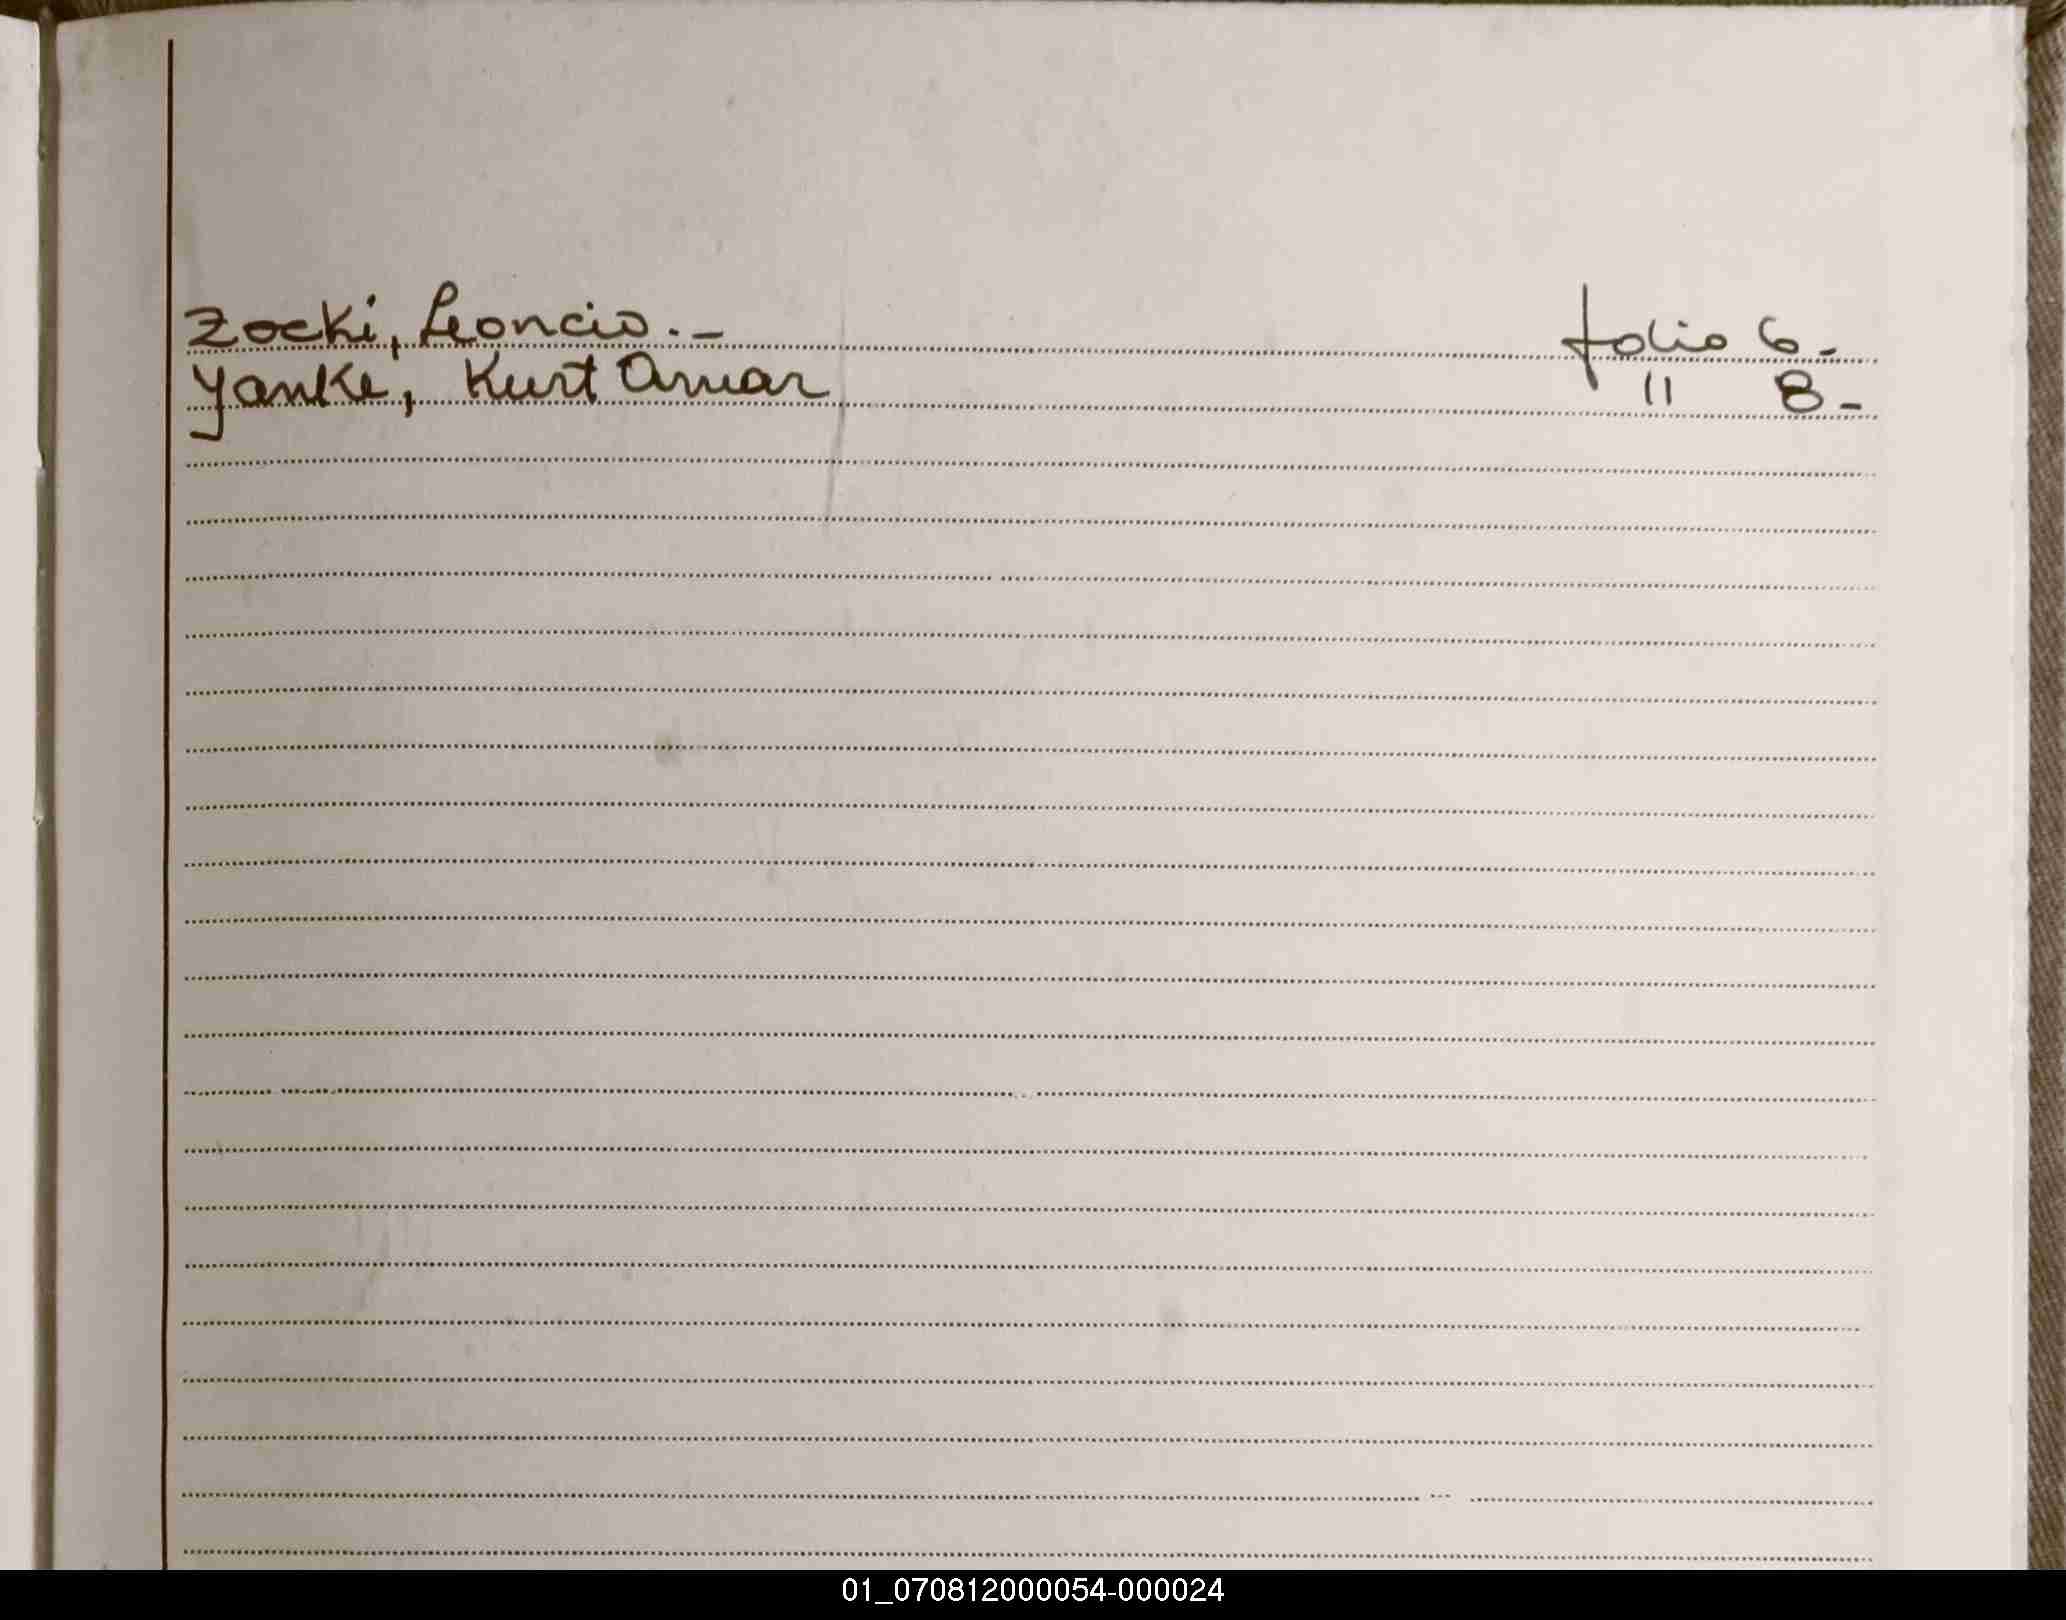 Zocki, Leoncio.- folio 6.-
Yanke, Kurt Omar " 8-
01_070812000054-000024